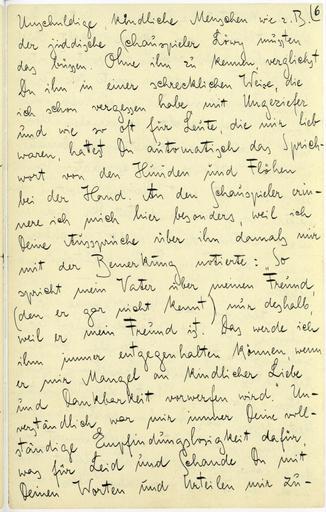 Unschuldige, kindliche Menschen wie z.B. 6
der jiddische Schauspieler Löwy mussten
das büssen. Ohne ihn zu kennen, verglichst
Du ihn in einer schrecklichen Weise, die
ich schon vergessen habe mit Ungeziefer
und wie so oft für Leute, die mir lieb
waren, hattest Du automatisch das Sprich-
wort von den Hunden und Flöhen
bei der Hand. An den Schauspieler erin-
nere ich mich hier besonders, weil ich
Deine Aussprüche über ihn damals mir
mit der Bemerkung notierte: „So
spricht mein Vater über meinen Freund,
(den er gar nicht kennt) nur deshalb,
weil er mein Freund ist. Das werde ich
ihm immer entgegenhalten können, wenn
er mir Mangel an kindlicher Liebe
und Dankbarkeit vorwerfen wird." Un-
verständlich war mir immer Deine voll-
ständige Empfindungslosigkeit dafür,
was für Leid und Schande Du mit
Deinen Worten und Urteilen mir zu-